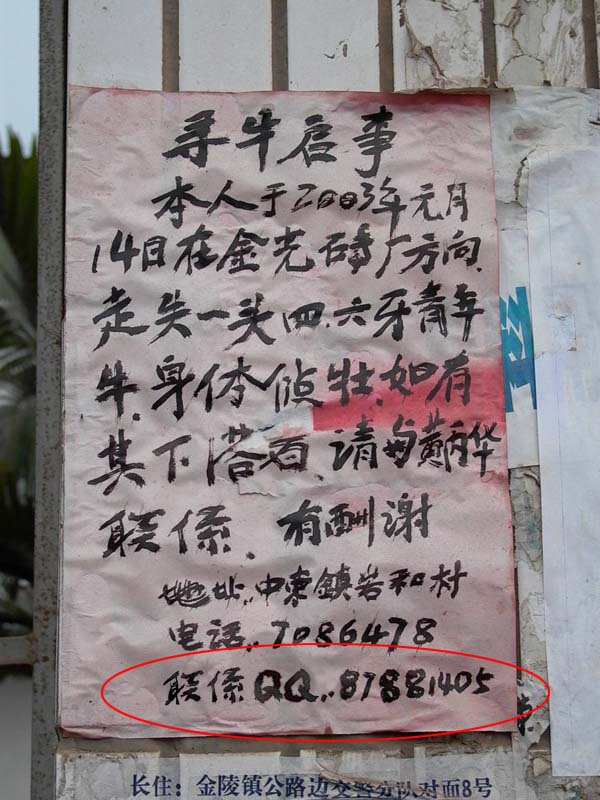 寻牛启事
本人于2003年元月
14日在金光砖厂方向
走失一头四.六牙青年
牛.身体侦壮.如有
其下落者.请与黄丙华
联係.有酬谢
地址..中東鎮岩和村
电话..7086478
联係QQ..87881405
长住：金陵镇公路边交警分队对面8号